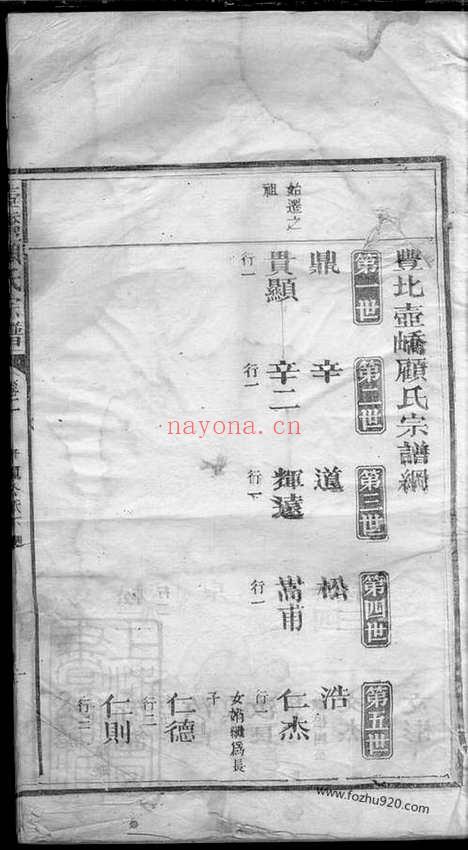 豐北壺嶠顧氏宗譜綱
第一世
第二世
第三世
第四世
第五世
始遷之
祖
鼎
辛
道
松
浩
貴顯
行一
辛二
行一
輝遠
行一
嵩甫
行一
仁杰
行一
為長
子
仁德
行二
仁則
行三
顧氏宗譜
nayona.cn
www.fozhu920.com